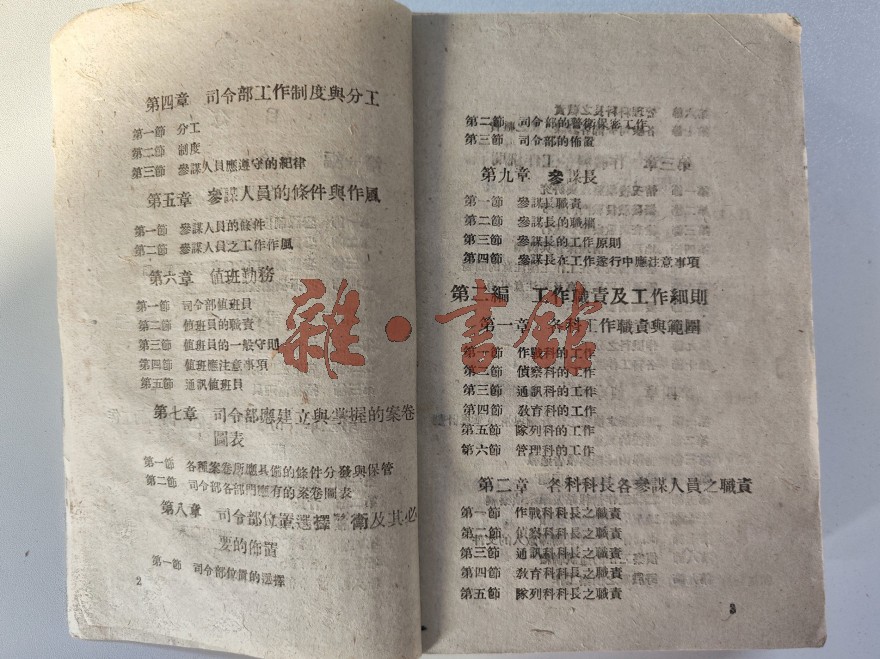 第四章 司令部工作制度與分工
第一節 分工
第二節 制度
第三節 參謀人員應遵守的紀律
第五章 參謀人員的條件與作風
第一節 參謀人員的條件
第二節 參謀人員之工作作風
第六章 值班勤務
第一節 司令部值班員
第二節 值班員的職責
第三節 值班員的一般守則
第四節 值班應注意事項
第五節 通訊值班員
第七章 司令部應建立與掌握的案卷
圖表
第一節 各種案卷所應具備的條件分發與保管
第二節 司令部各部門應有的案卷圖表
第八章 司令部位置選擇警衛及其必
要的佈置
第一節 司令部位置的選擇
2
第二節 司令部的警衛保密工作
第三節 司令部的佈置
第九章 參謀長
第一節 參謀長職責
第二節 參謀長的職權
第三節 參謀長的工作原則
第四節 參謀長在工作遂行中應注意事項
第二編 工作職責及工作細則
第一章 各科工作職責與範圍
第一節 作戰科的工作
第二節 偵察科的工作
第三節 通訊科的工作
第四節 教育科的工作
第五節 隊列科的工作
第六節 管理科的工作
第二章 各科科長各參謀人員之職責
第一節 作戰科科長之職責
第二節 偵察科科長之職責
第三節 通訊科科長之職責
第四節 教育科科長之職責
第五節 隊列科科長之職責
3
雜·書館